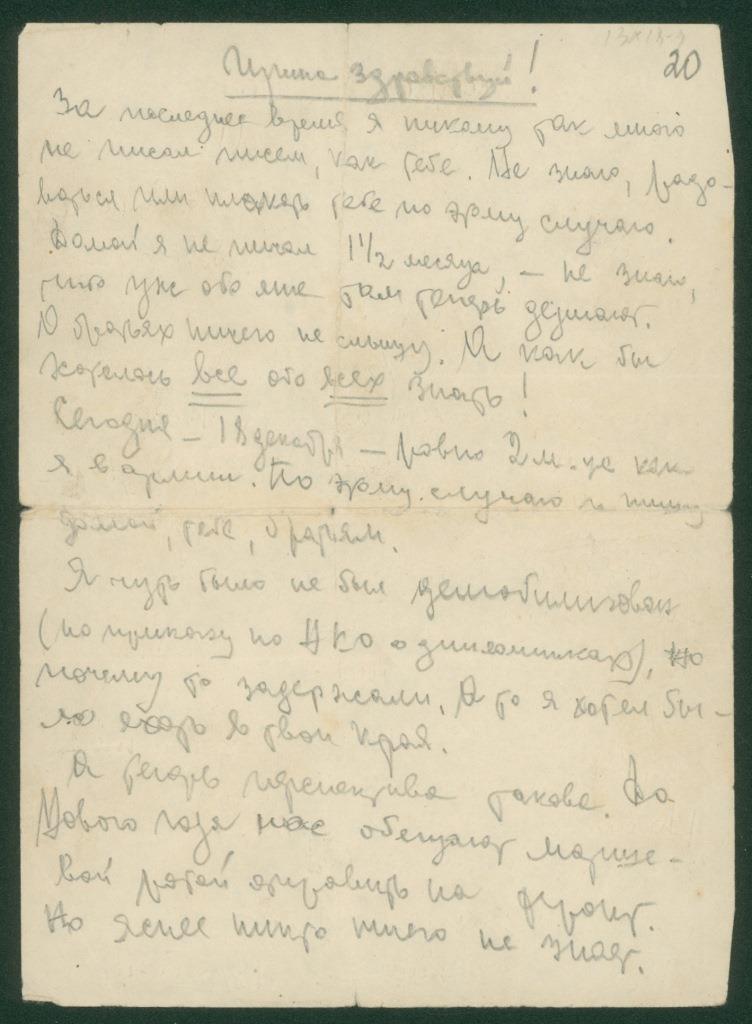 20
Ирина здравствуй!
За последнее время я никому так много
не писал писем, как тебе. Не знаю, радо-
ваться или плакать тебе по этому случаю.
Домой я не писал 1 1/2 месяца, – не знаю,
что уж обо мне там теперь думают.
О братьях ничего не слышу. А как бы
хотелось все обо всех знать!
Сегодня – 18 декабря – ровно 2 м-ца как
я в армии. По этому случаю и пишу
домой, тебе, братьям.
Я чуть было не был демобилизован
(по приказу по НКО о дипломниках), но
почему то задержали. А то я хотел бы-
ло ехать в твои края.
А теперь перспектива такова. До
Нового года нас обещают марше-
вой ротой отправить на фронт.
Но яснее никто ничего не знает.